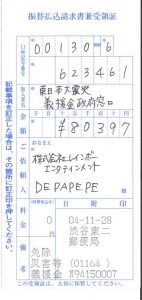 振替払込請求書兼受領証
00130=6
623461
東日本大震災
義援金政府窓口
¥80397
おなまえ
株式会社レインボー
エンタテインメント
DEPAPEPE
様
料金
0
日附印
04-11-28
渋谷東二
郵便局
備考
免除
災害等 (01164)
義援金 N94150007
記載事項を訂正した場合は、その箇所に訂正印を押してください。
この受領証は、大切に保管してください。